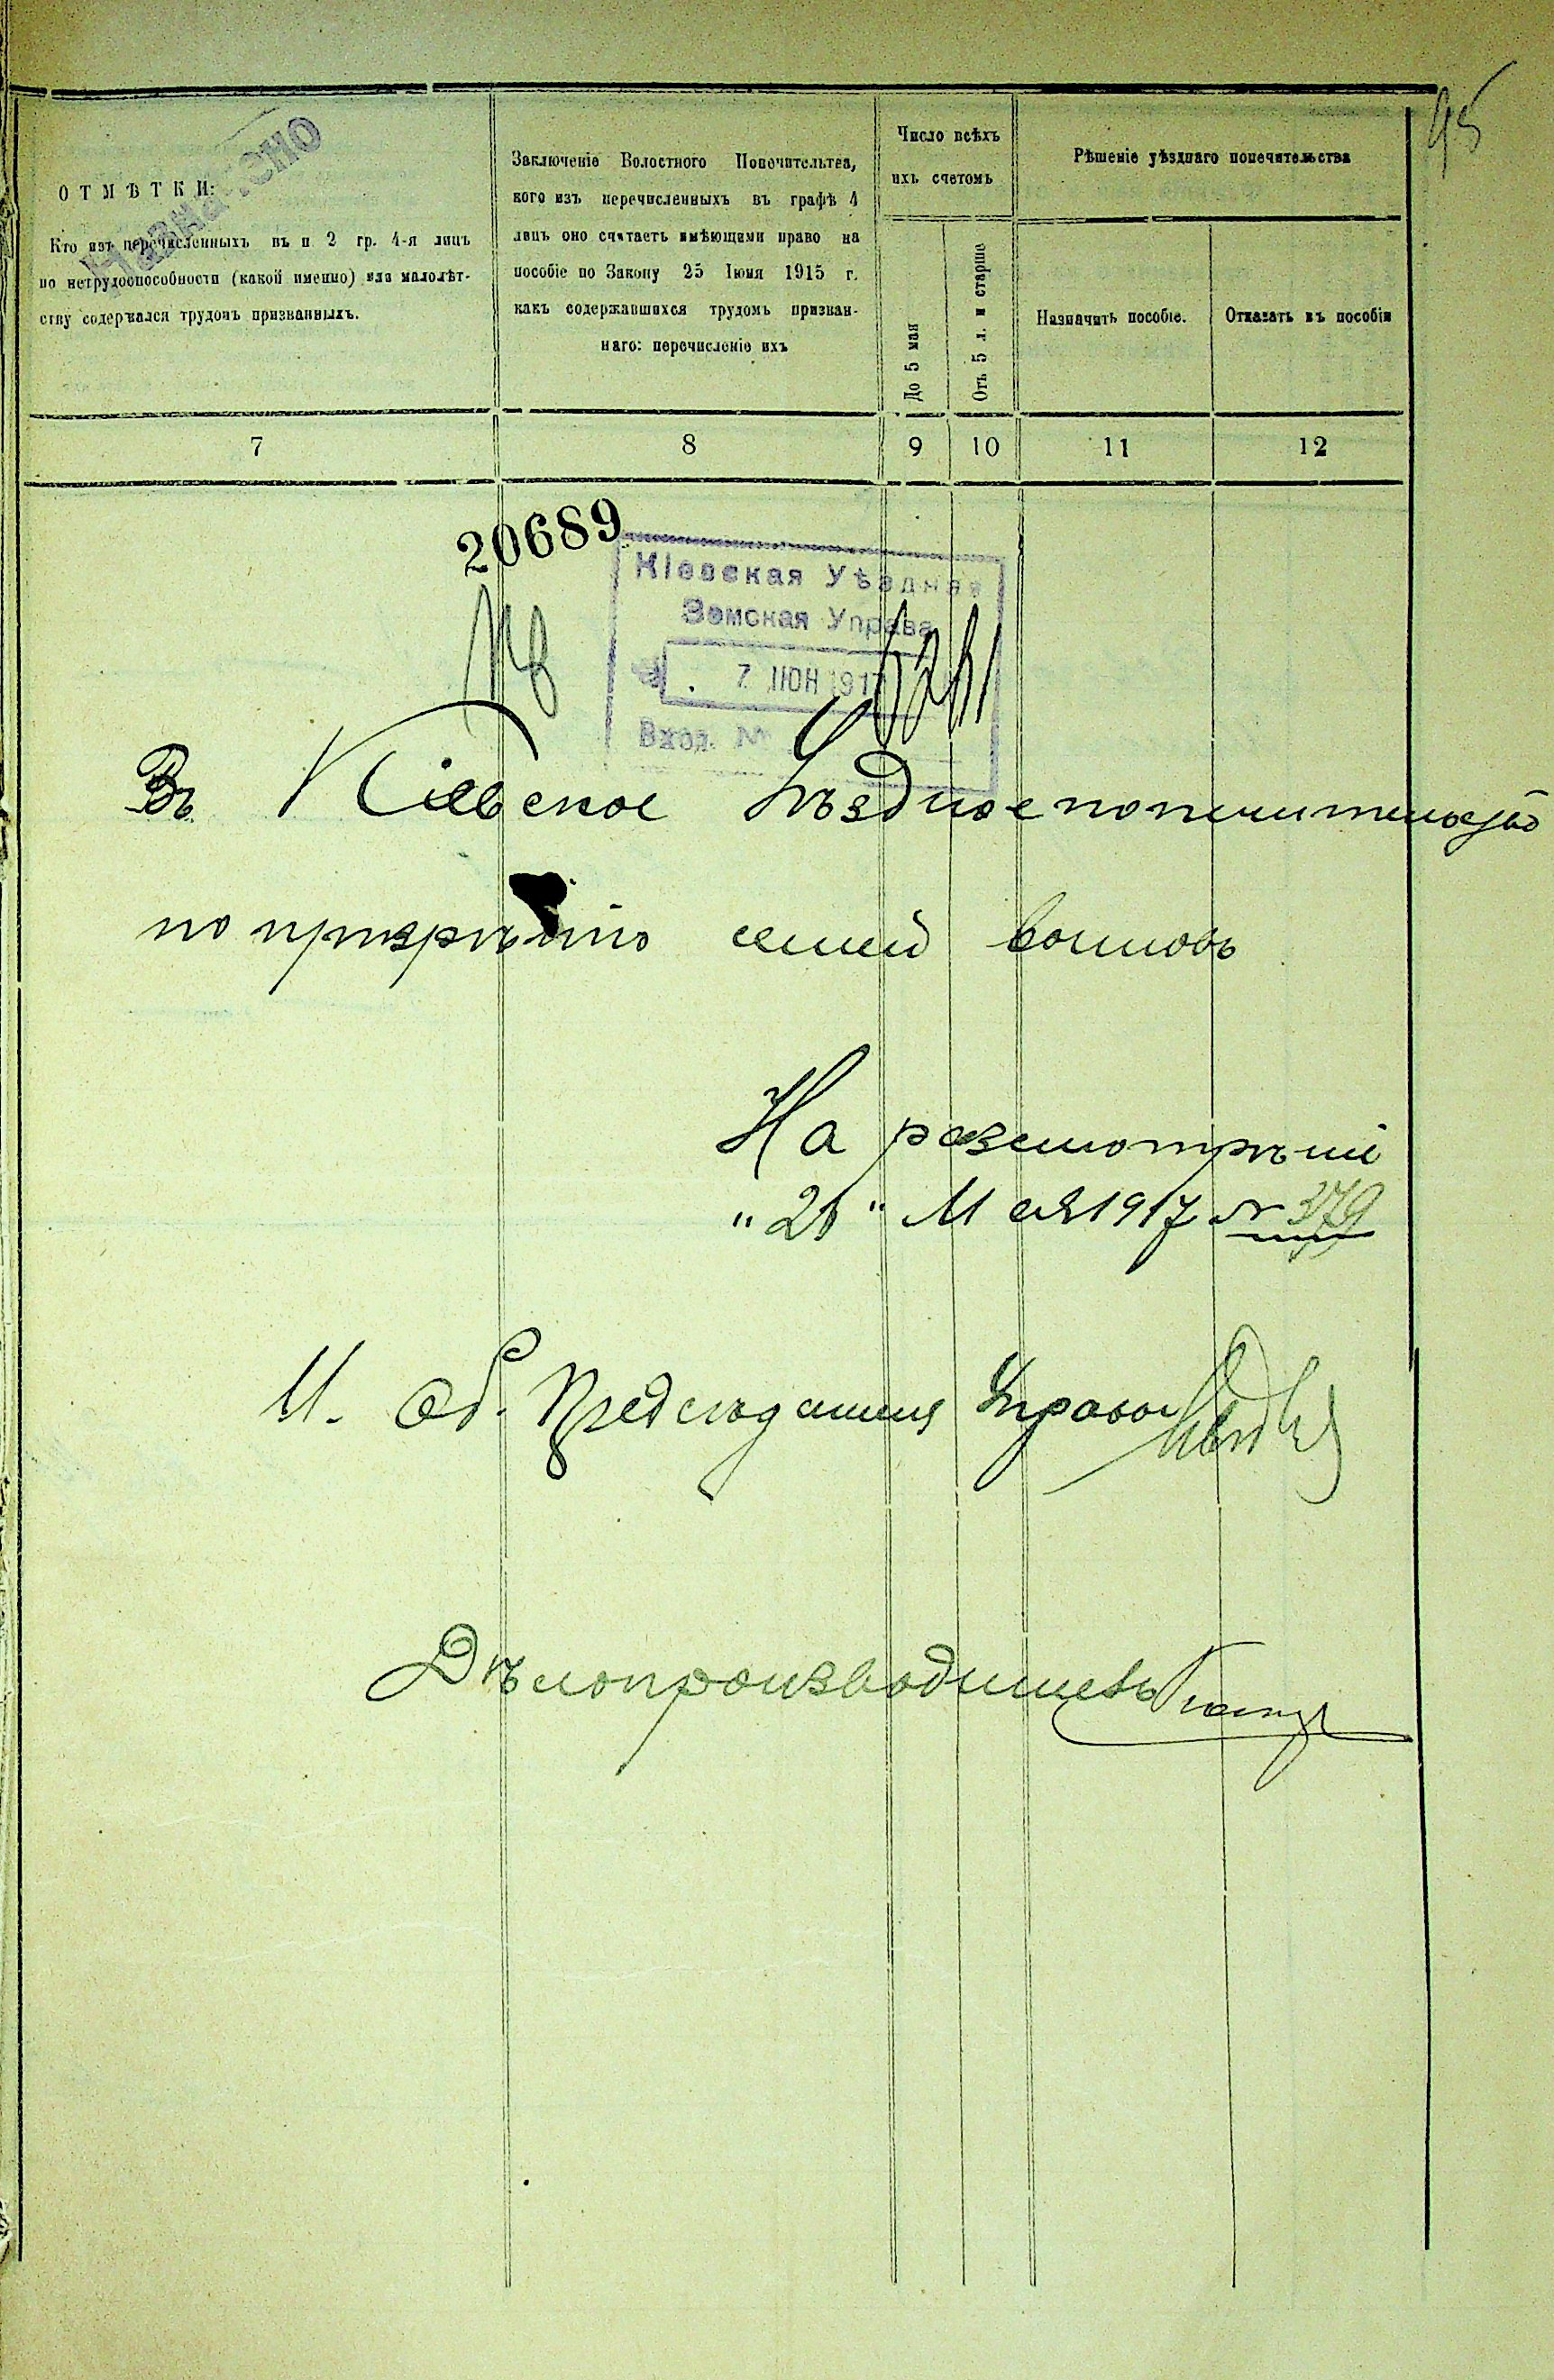 95
Назначено
ОТМѢТКИ:
Кто изъ перечисленныхъ въ п 2 гр. 4-я лицъ
по нетрудоспособности (какой именно) или малолѣт-
ству содержался трудомъ призванныхъ.
Заключеніе Волостного Попечительтва,
кого изъ перечисленныхъ въ графѣ 4
лицъ оно считаетъ имѣющими право на
пособіе по Закону 25 Іюня 1915 г.
какъ содержавшихся трудомъ призван-
наго: перечисленіе ихъ
Число всѣхъ
ихъ счетомъ
До 5 мая
Отъ 5 л. и старше
Рѣшеніе уѣзднаго попечительства
Назначить пособіе.
Отказать въ пособіи
7 8 9 10 11 12
20689
Кіевская Уѣздная
Земская Управа
7 ІЮН 1917
Вход. №
Въ Кіевское Уѣздное попечительство
по призрѣнію семей воиновъ
На разсмотрѣніе
"26" Мая 1917 № 379
И. об. Предсѣдателя Управы
Дѣлопроизводитель